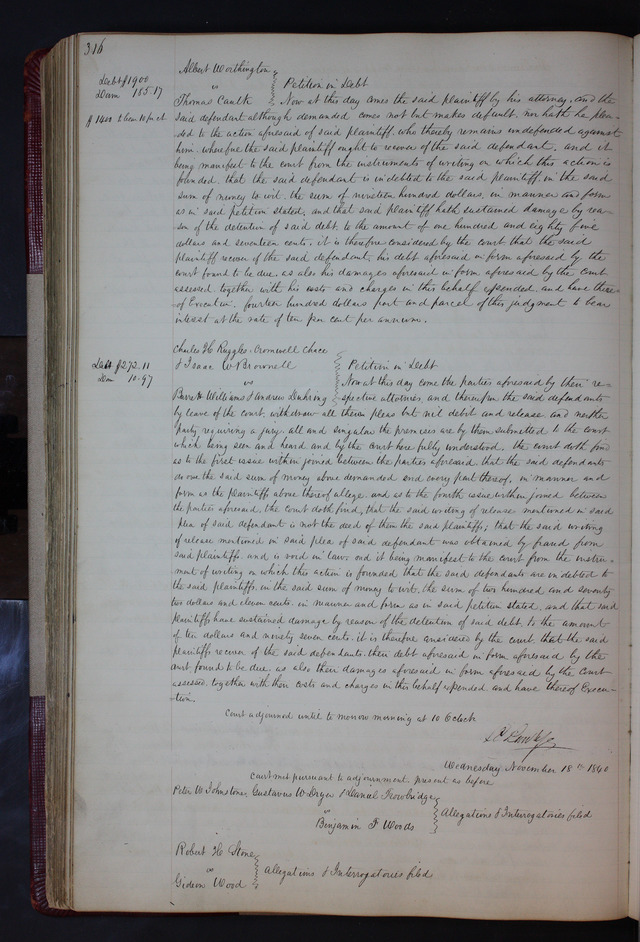 316
Albert Worthington
vs
Debt $1900
Dam 185.17
Petition in Debt
Thomas Caulk
Now at this day comes the said plaintiff by his attorney, and the
$1400 to bear 10 pr ct
said defendant although demanded comes not but makes default, nor hath he plea-
ded to the action aforesaid of said plaintiff, who thereby remains undefended against
him, wherefore the said plaintiff ought to recover of the said defendant, and it
being manifest to the court from the instruments of writing on which this action is
founded, that the said defendant is indebted to the said plaintiff, in the said
sum of money to wit, the sum of nineteen hundred dollars, in manner and form
as in said petition stated, and that said plaintiff hath sustained damage by rea-
son of the detention of said debt to the amount of one hundred and eighty five
dollars and seventeen cents, it is therefore considered by the court that the said
plaintiff recover of the said defendant, his debt aforesaid in form aforesaid by the
court found to be due, as also his damages aforesaid in form aforesaid by the Court
assessed, together with his costs and charges in this behalf expended, and have there
of Execution, fourteen hundred dollars part and parcel of this judgment to bear
interest at the rate of ten per cent per annum.
Charles H Ruggles, Cromwell Chace
Debt $272.11
Dam 10.97
& Isaac W Brownell
vs
Petition in Debt
Now at this day come the parties aforesaid by their re-
Barrett Williams & Andrew Duhring
spective attornies, and thereupon the said defendants
by leave of the court, withdraw all their pleas but nil debit and release and neither
party requiring a jury, all and singular the premises are by them submitted to the court
which being seen and heard and by the court here fully understood, the court doth find
as to the first issue within joined between the parties aforesaid, that the said defendants
do owe the said sum of money above demanded and every part thereof, in manner and
form as the plaintiffs above thereof allege, and as to the fourth issue within joined between
the parties aforesaid, the Court doth find, that the said writing of release mentioned in said
plea of said defendant is not the deed of them the said plaintiffs; that the said writing
of release mentioned in said plea of said defendant was obtained by fraud from
said plaintiffs and is void in law, and it being manifest to the court from the instru-
ment of writing on which this action is founded that the said defendants are indebted to
the said plaintiffs, in the said sum of money to wit, the sum of two hundred and seventy
two dollars and eleven cents, in manner and form as in said petition stated, and that said
plaintiffs have sustained damage by reason of the detention of said debt, to the amount
of ten dollars and ninety seven cents, it is therefore considered by the court, that the said
plaintiffs recover of the said defendants, their debt aforesaid in form aforesaid by the
court found to be due, as also their damages aforesaid in form aforesaid by the Court
assessed, together with their costs and charges in this behalf expended, and have thereof Execu-
tion.
Court adjourned until to morrow morning at 10 Oclock
Wednesday November 18th 1840
Court met pursuant to adjournment, present as before
Peter W Johnstone, Gustavus W Dryer & Daniel Trowbridge
vs
Allegations & Interrogatories filed
Benjamin F Woods
Robert H Stone
vs
Allegations & Interrogatories filed
Gideon Wood